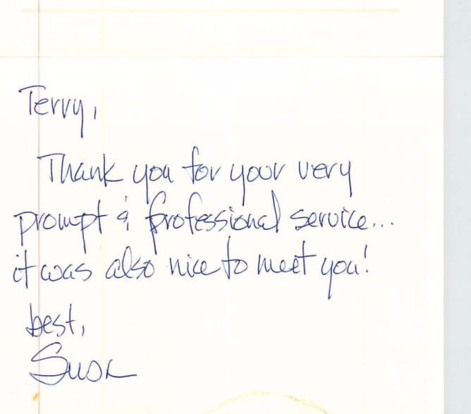 Terry,
Thank you for your very
prompt & professional service...
it was also nice to meet you!
best,